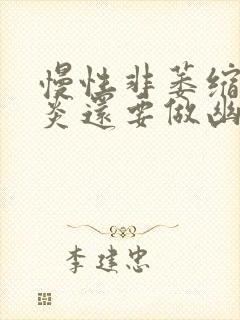 慢性非萎缩
炎還要做幽
李建忠